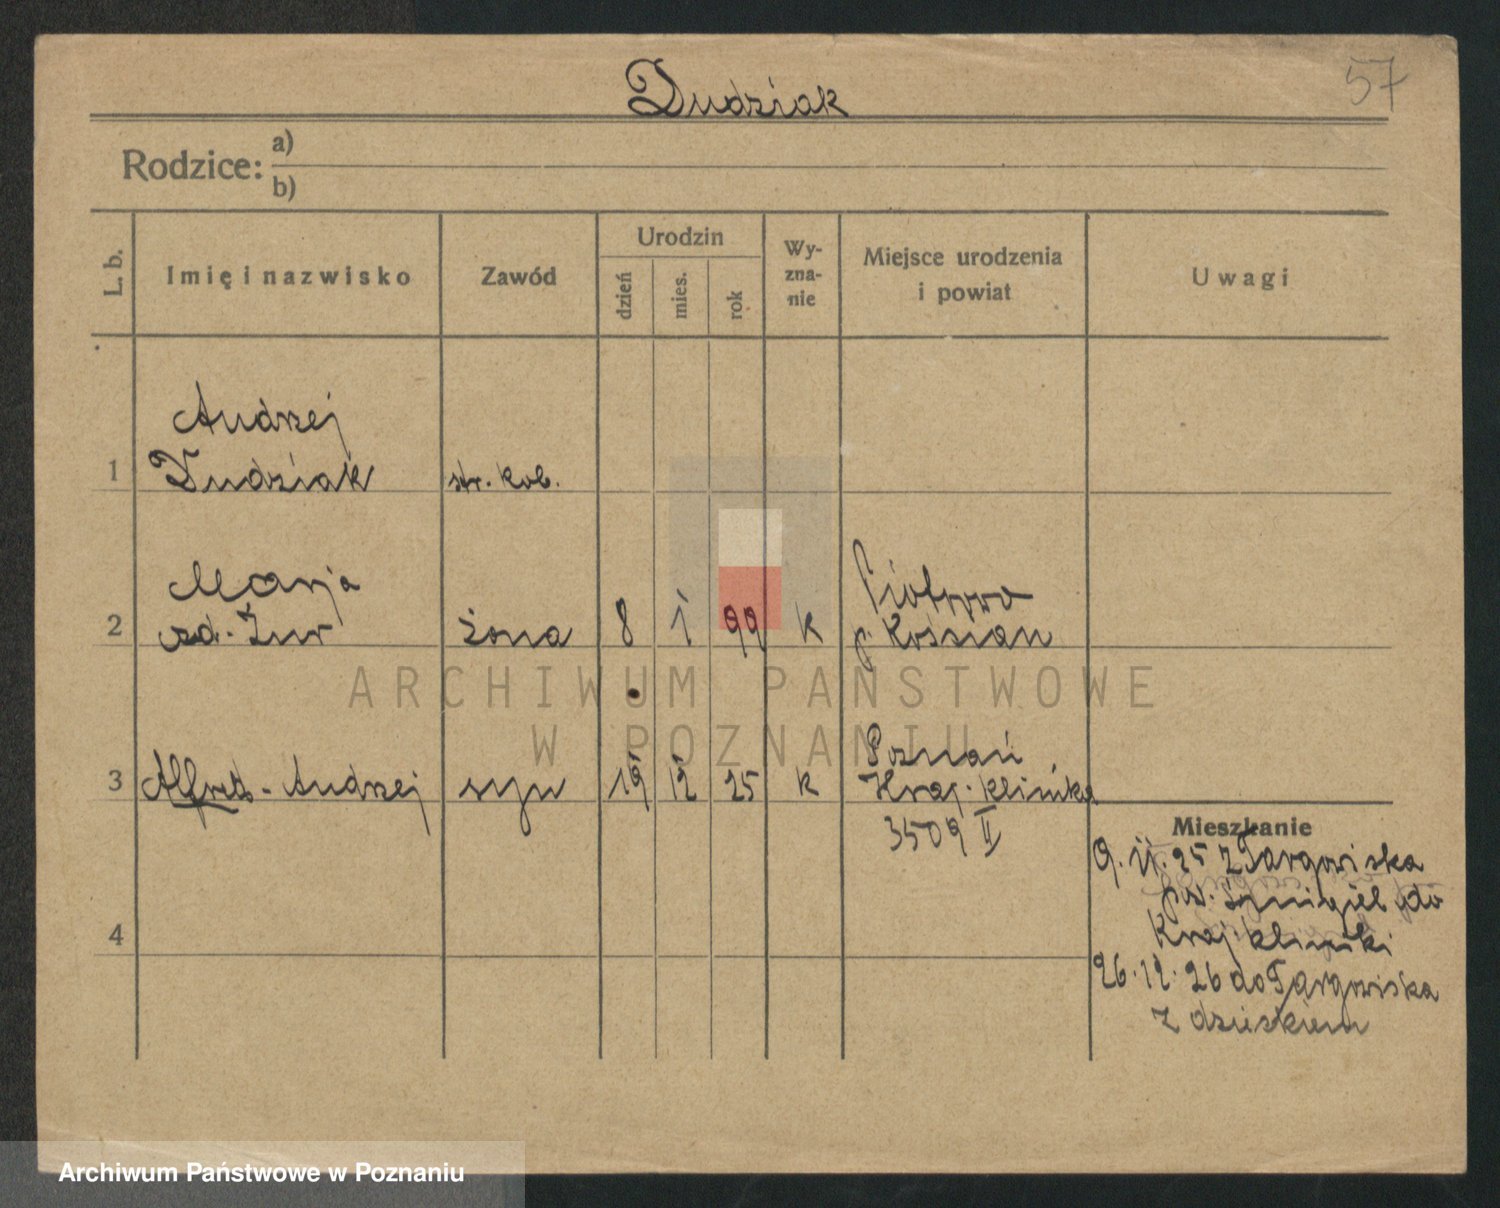 57
Dudziak
Rodzice: a)
b)
L. b.
Imię i nazwisko
Zawód
Urodzin
dzień
mies.
rok
Wy-
zna-
nie
Miejsce urodzenia
i powiat
Uwagi
Andrzej
1 Dudziak str. kol.
Marja Piotrowo
2 zd. Żur żona 8 1 99 k p. Kościan
ARCHIWUM PAŃSTWOWE
W POZNANIU
Poznań
3 Alfred - Andrzej syn 19 12 25 k Kraj. klinika
3509 II
Mieszkanie
9. 11. 25 z Targowiska
pow. Śmigiel do
Kraj. kliniki
4
26. 12. 26 do Targowiska
z dzieckiem
Archiwum Państwowe w Poznaniu